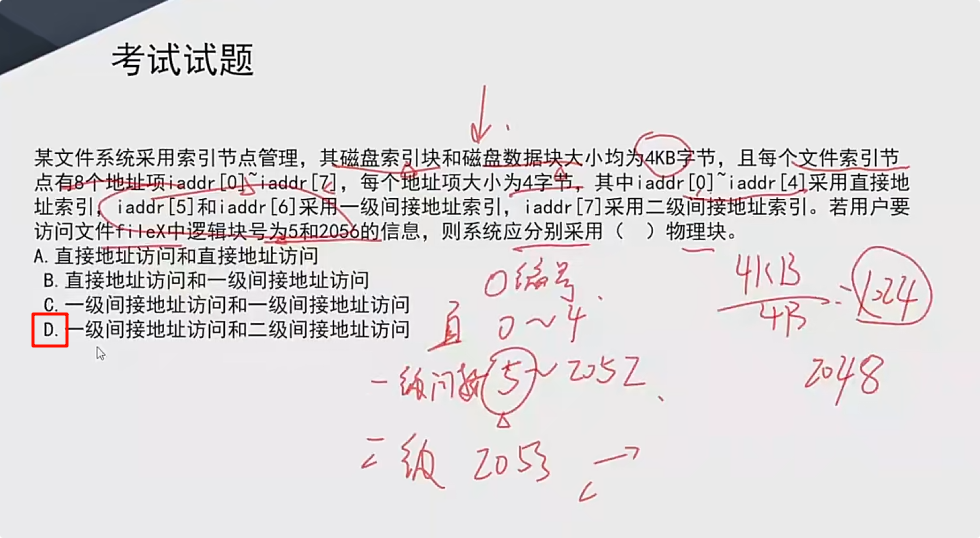 考试试题
某文件系统采用索引节点管理，其磁盘索引块和磁盘数据块大小均为4KB字节，且每个文件索引节
点有8个地址项iaddr[0]~iaddr[7]，每个地址项大小为4字节，其中iaddr[0]~iaddr[4]采用直接地
址索引，iaddr[5]和iaddr[6]采用一级间接地址索引，iaddr[7]采用二级间接地址索引。若用户要
访问文件fileX中逻辑块号为5和2056的信息，则系统应分别采用（ ）物理块。
A. 直接地址访问和直接地址访问
B. 直接地址访问和一级间接地址访问
C. 一级间接地址访问和一级间接地址访问
D. 一级间接地址访问和二级间接地址访问
0编号
直 0～4
一级间接 5～2052
二级 2053
4KB
4B
=1024
2048